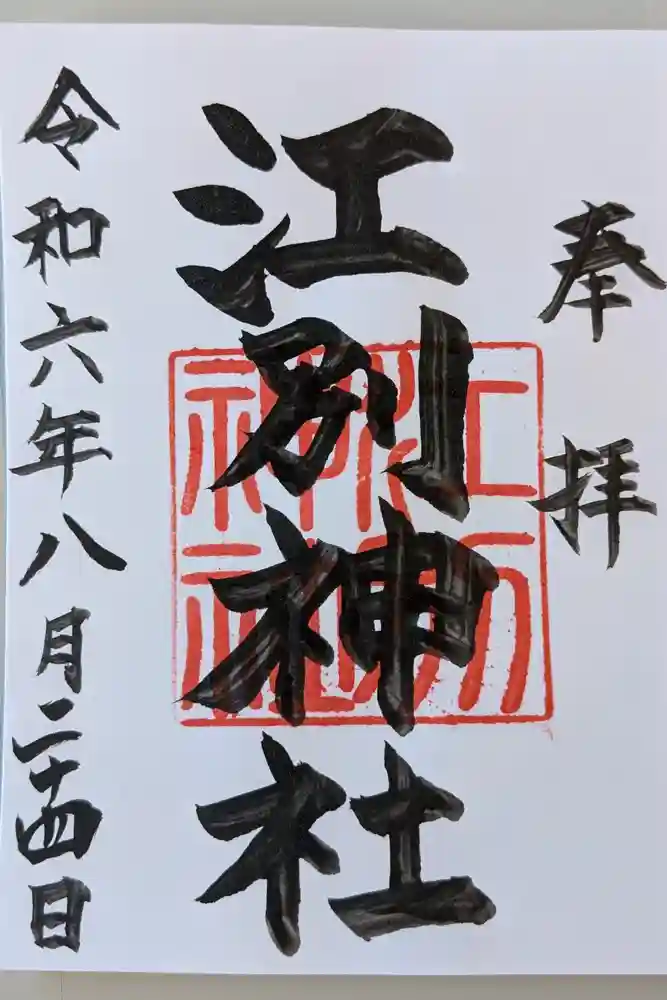 奉拝
江別神社
江別神社
令和六年八月二十四日